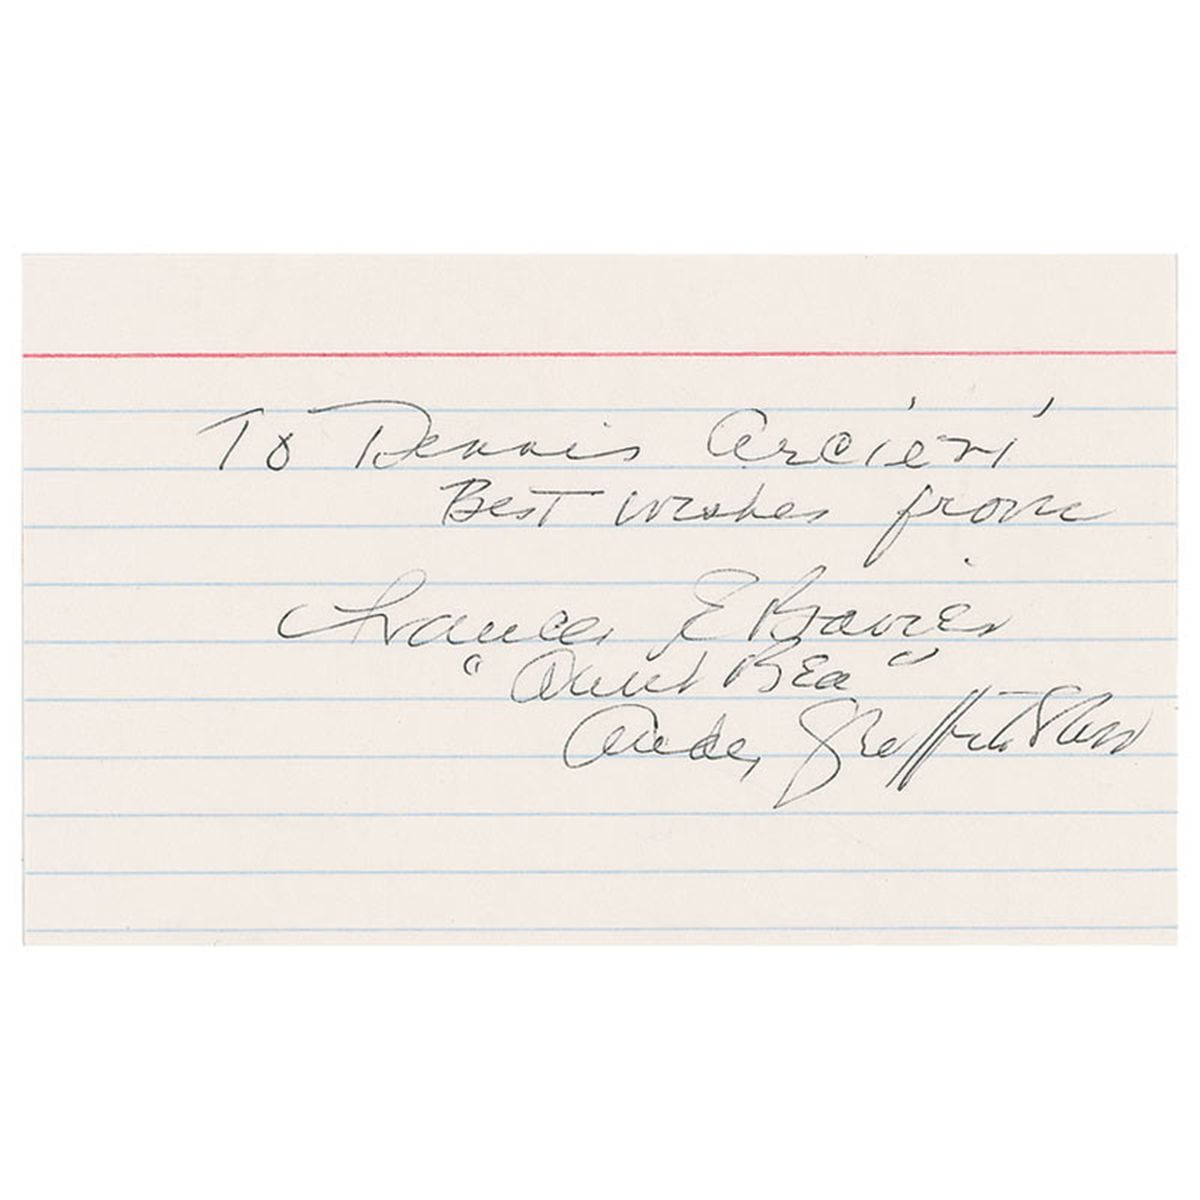 To Dennis Arcieri
Best wishes from
Frances E Bavier
"Aunt Bea"
Andy Griffith Show